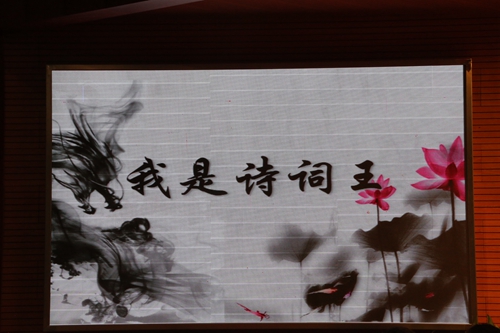 我是诗词王